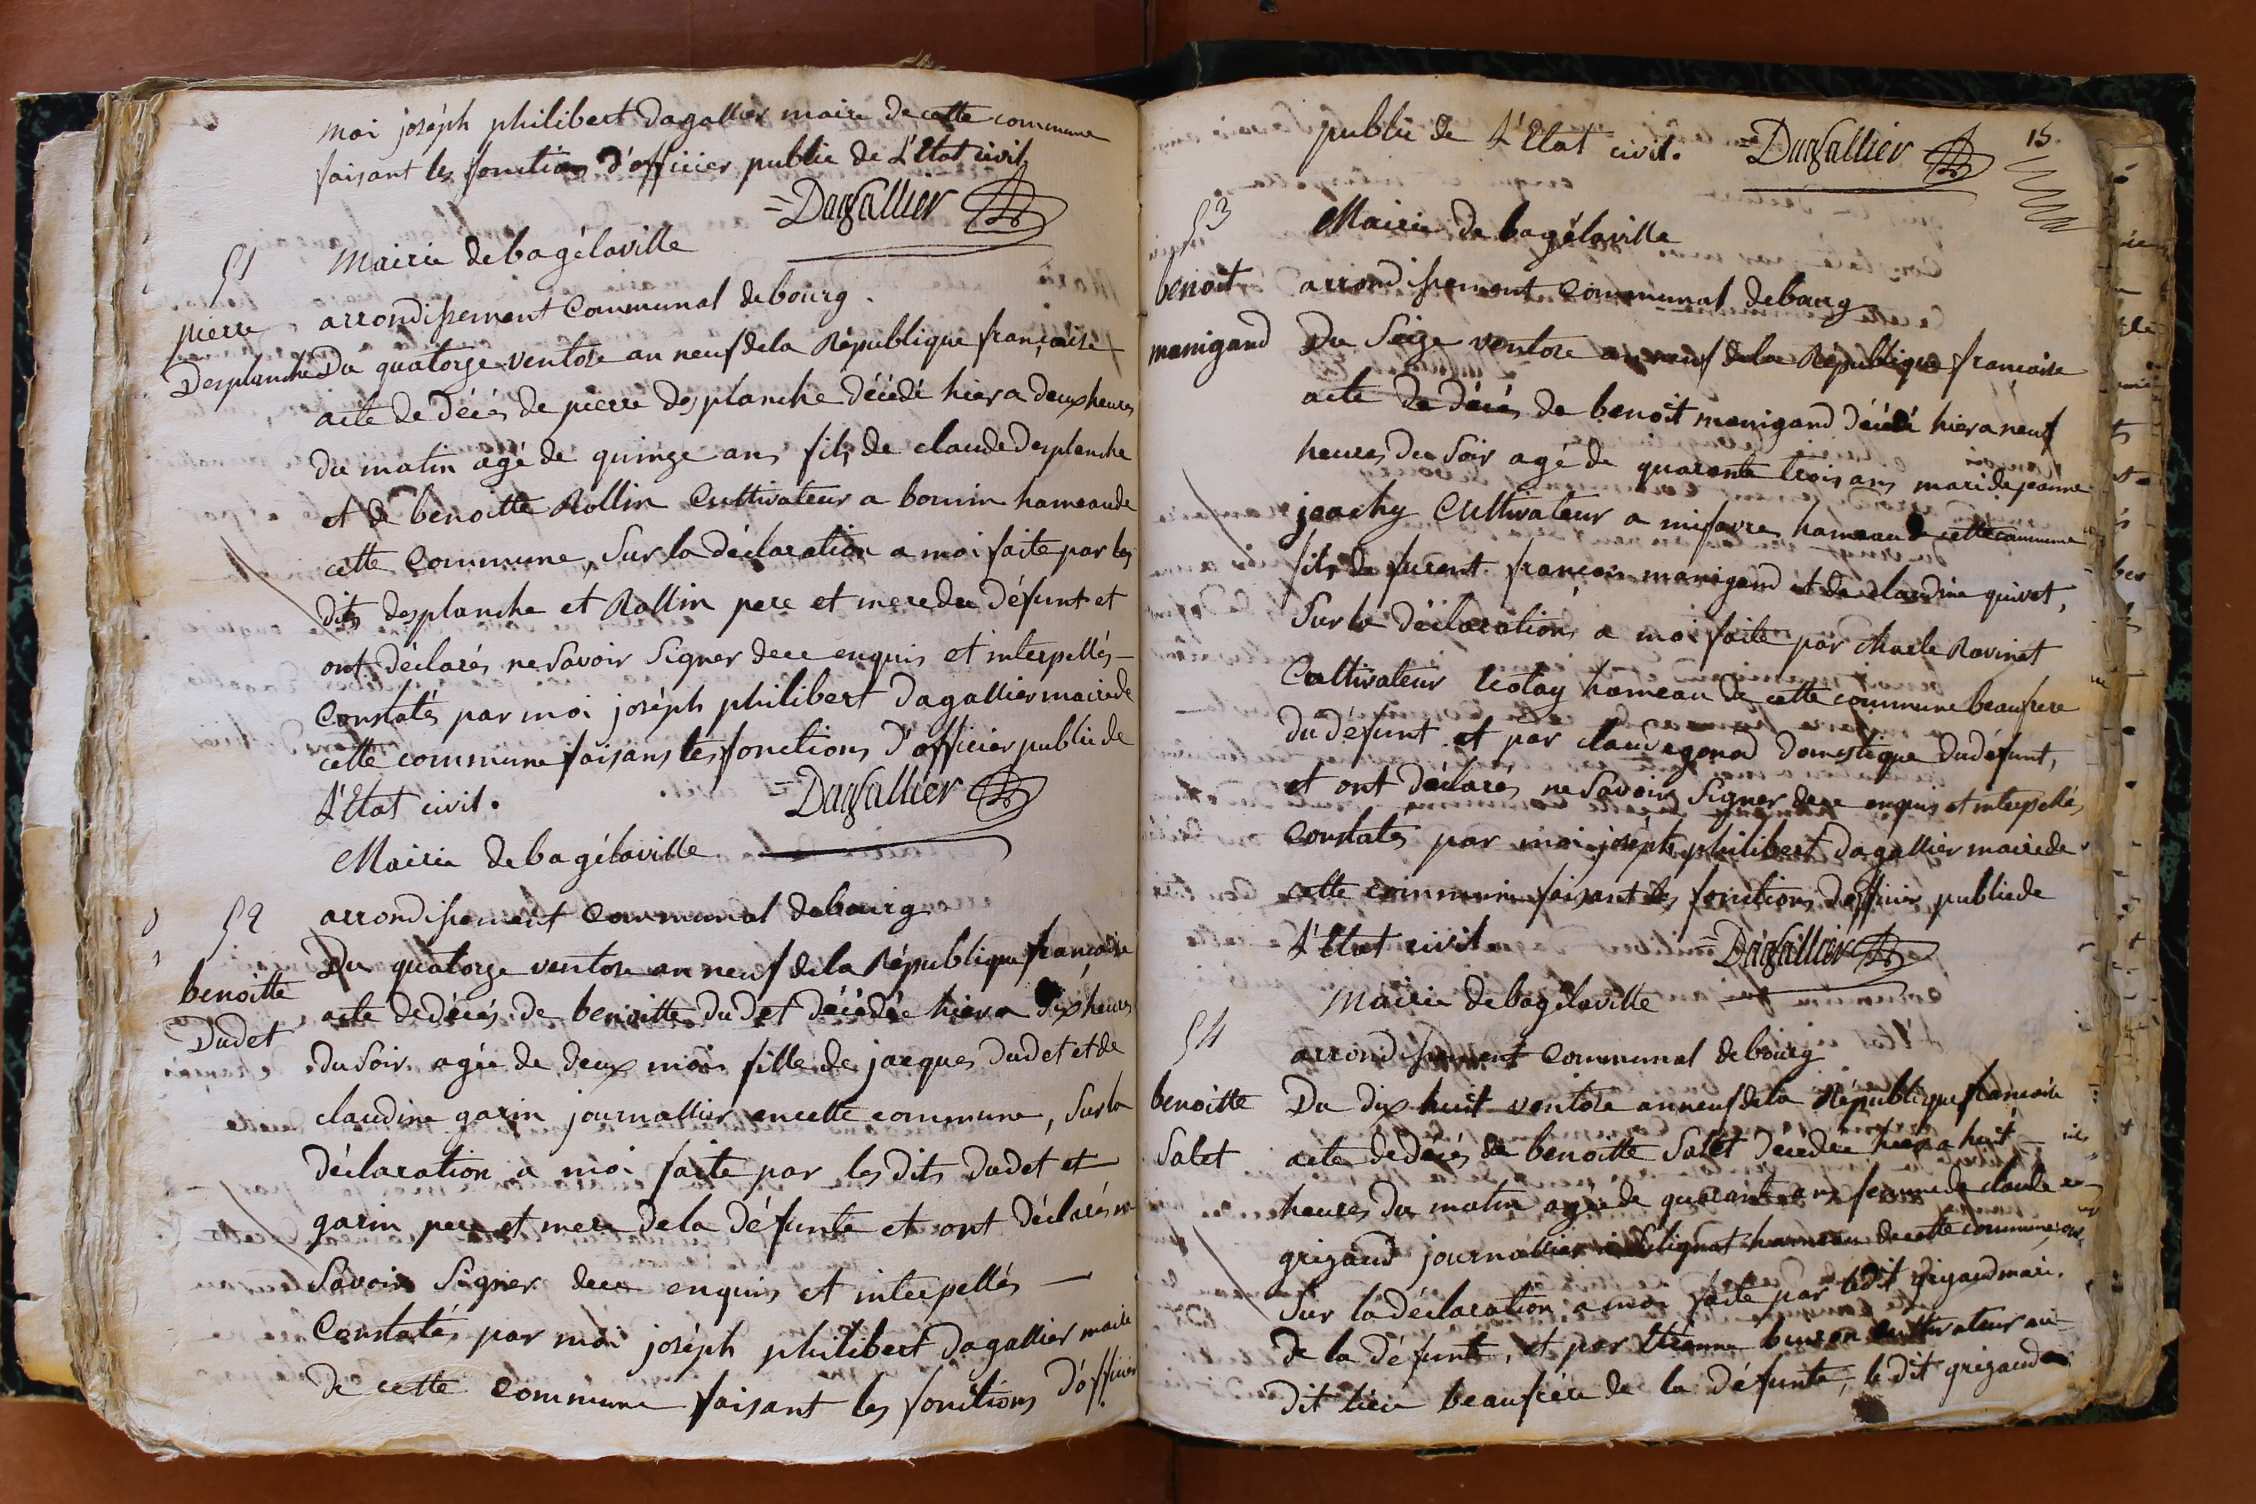 moi joséph philibert dagallier maire de cette commune
faisant les fonctions d'officier public de L'Etat civil
= Dagallier
51
Mairie de bagélaville
arrondissement Communal de bourg.
pierre
Desplanche
Du quatorze ventose an neuf de la République française
acte de décés de pierre desplanche décédé hier a deux heures
du matin agé de quinze ans fils de claude Desplanche
et de benoitte Rollin Cultivateur a hameau de
cette Commune, Sur la déclaration a moi faite par les
dits desplanche et Rollin pere et mere du défunt et
ont déclarés ne Savoir Signer de ce enquis et interpellés
Constatés par moi joséph philibert dagallier maire de
cette commune faisans les fonctions d'officier public de
L'Etat civil.
= Dagallier
Mairie de bagélaville
52
arrondissement Communal de bourg
benoitte
Dudet
Du quatorze ventose an neuf de la République francaise
acte de décés de benoitte dudet décédée hier a dix heures
du Soir agée de deux mois fille de jacques dudet et de
claudine garin journallier en cette commune, Sur la
déclaration a moi faite par les dits dudet et
garin pere et mere de la défunte et ont déclarés ne
Savoir Signer de ce enquis et interpellés —
Constatés par moi joséph philibert dagallier maire
de cette commune faisant les fonctions d'officier
15
public de L'Etat civil. = Dagallier
53
Mairie de bagélaville
benoit
manigand
arrondissement Communal de bourg
Du Seize ventose an neuf de la République francaise
acte de décés de benoit manigand décédé hier a neuf
heures du Soir agé de quarente trois ans mari de jeanne
Cultivateur a mifavre hameau de cette commune
fils de furent françois manigand et de claudine quivet,
Sur la déclaration a moi faite par charle Ravinet
Cultivateur hameau de cette commune beaufrere
du défunt et par claude gonod domestique du défunt,
et ont déclarés ne Savoir Signer de ce enquis et interpellés
Constatés par moi joséph philibert dagallier maire de
cette commune faisant les fonctions d'officier public de
L'Etat civil
= Dagallier
Mairie de bagélaville
54
arrondissement Communal de bourg
benoitte
Salet
Du dix huit ventose an neuf de la République francaise
acte de décés de benoitte Salet décédée hier a huit
heures du matin agée de quarante ans femme de claude
grizaud journallier hameau de cette commune
Sur la déclaration a moi faite par ledit grizaud mari
de la défunte, et par Etienne buiron cultivateur au
dit lieu beaufrére de la défunte, le dit grizaud